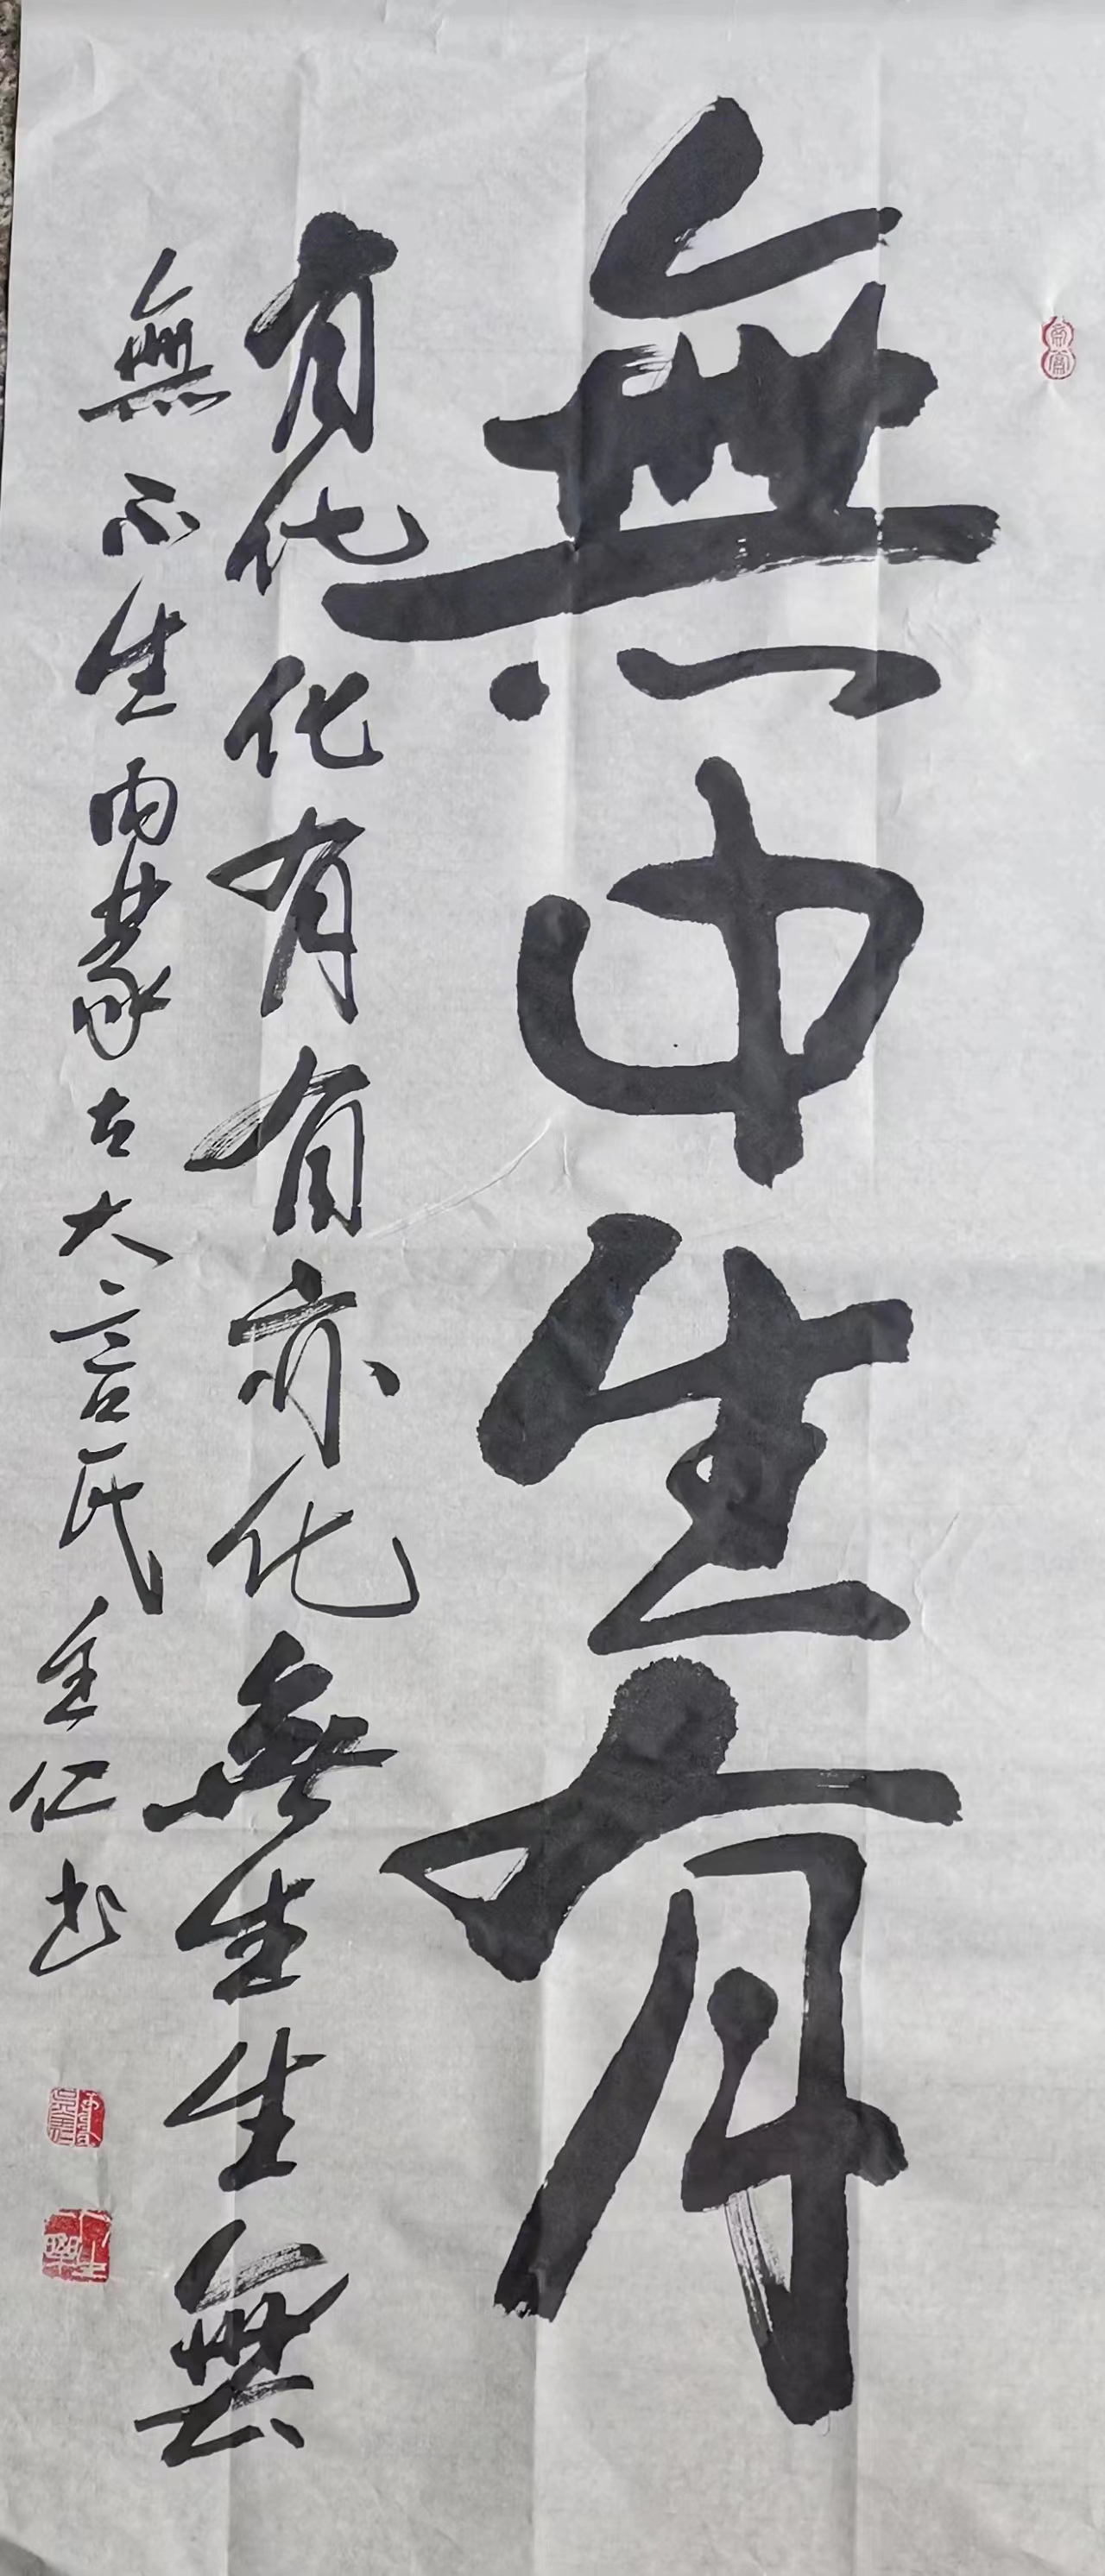 無中生有
有化化有有亦化無生生無
無不生内蒙古大言民主仁书